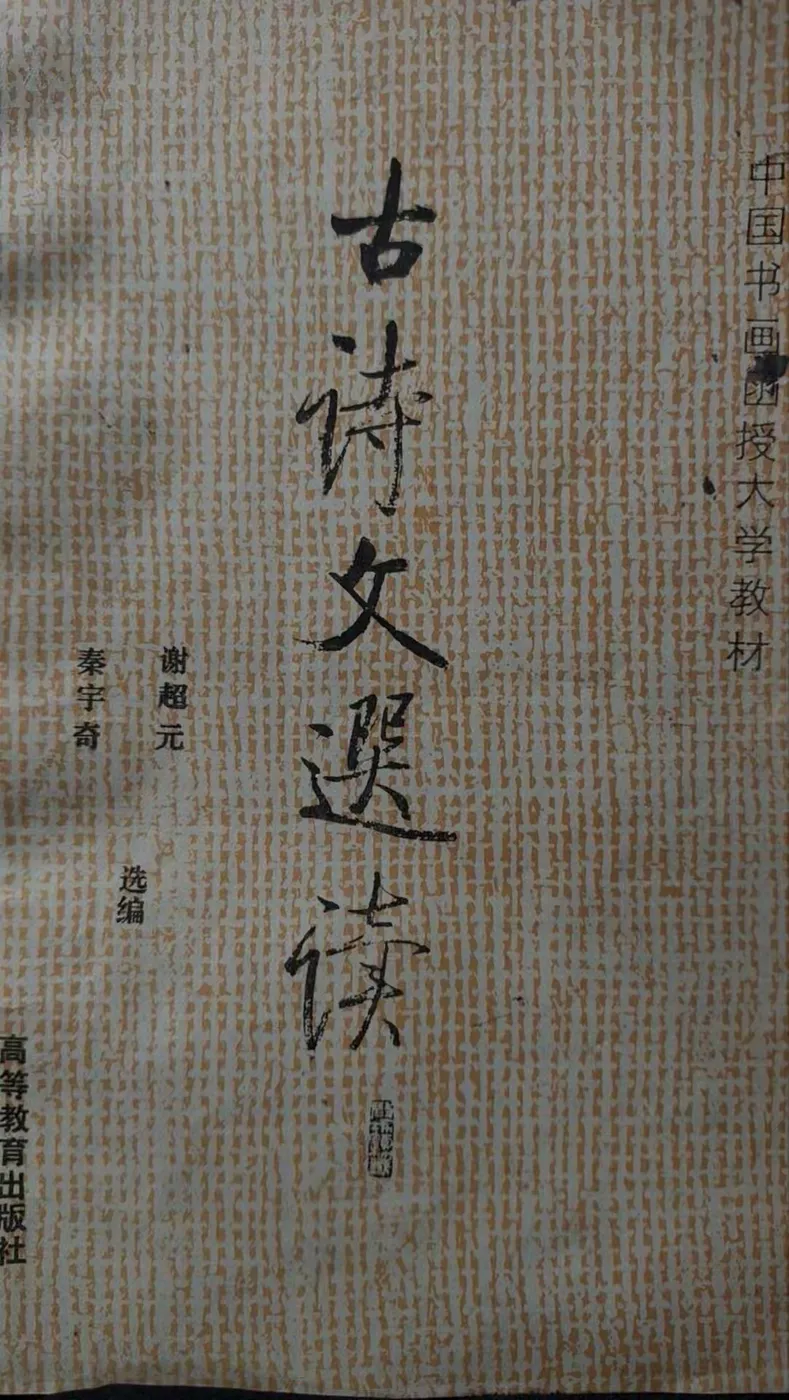 中国书画函授大学教材
古诗文選读
谢超元
秦宇奇
选编
高等教育出版社